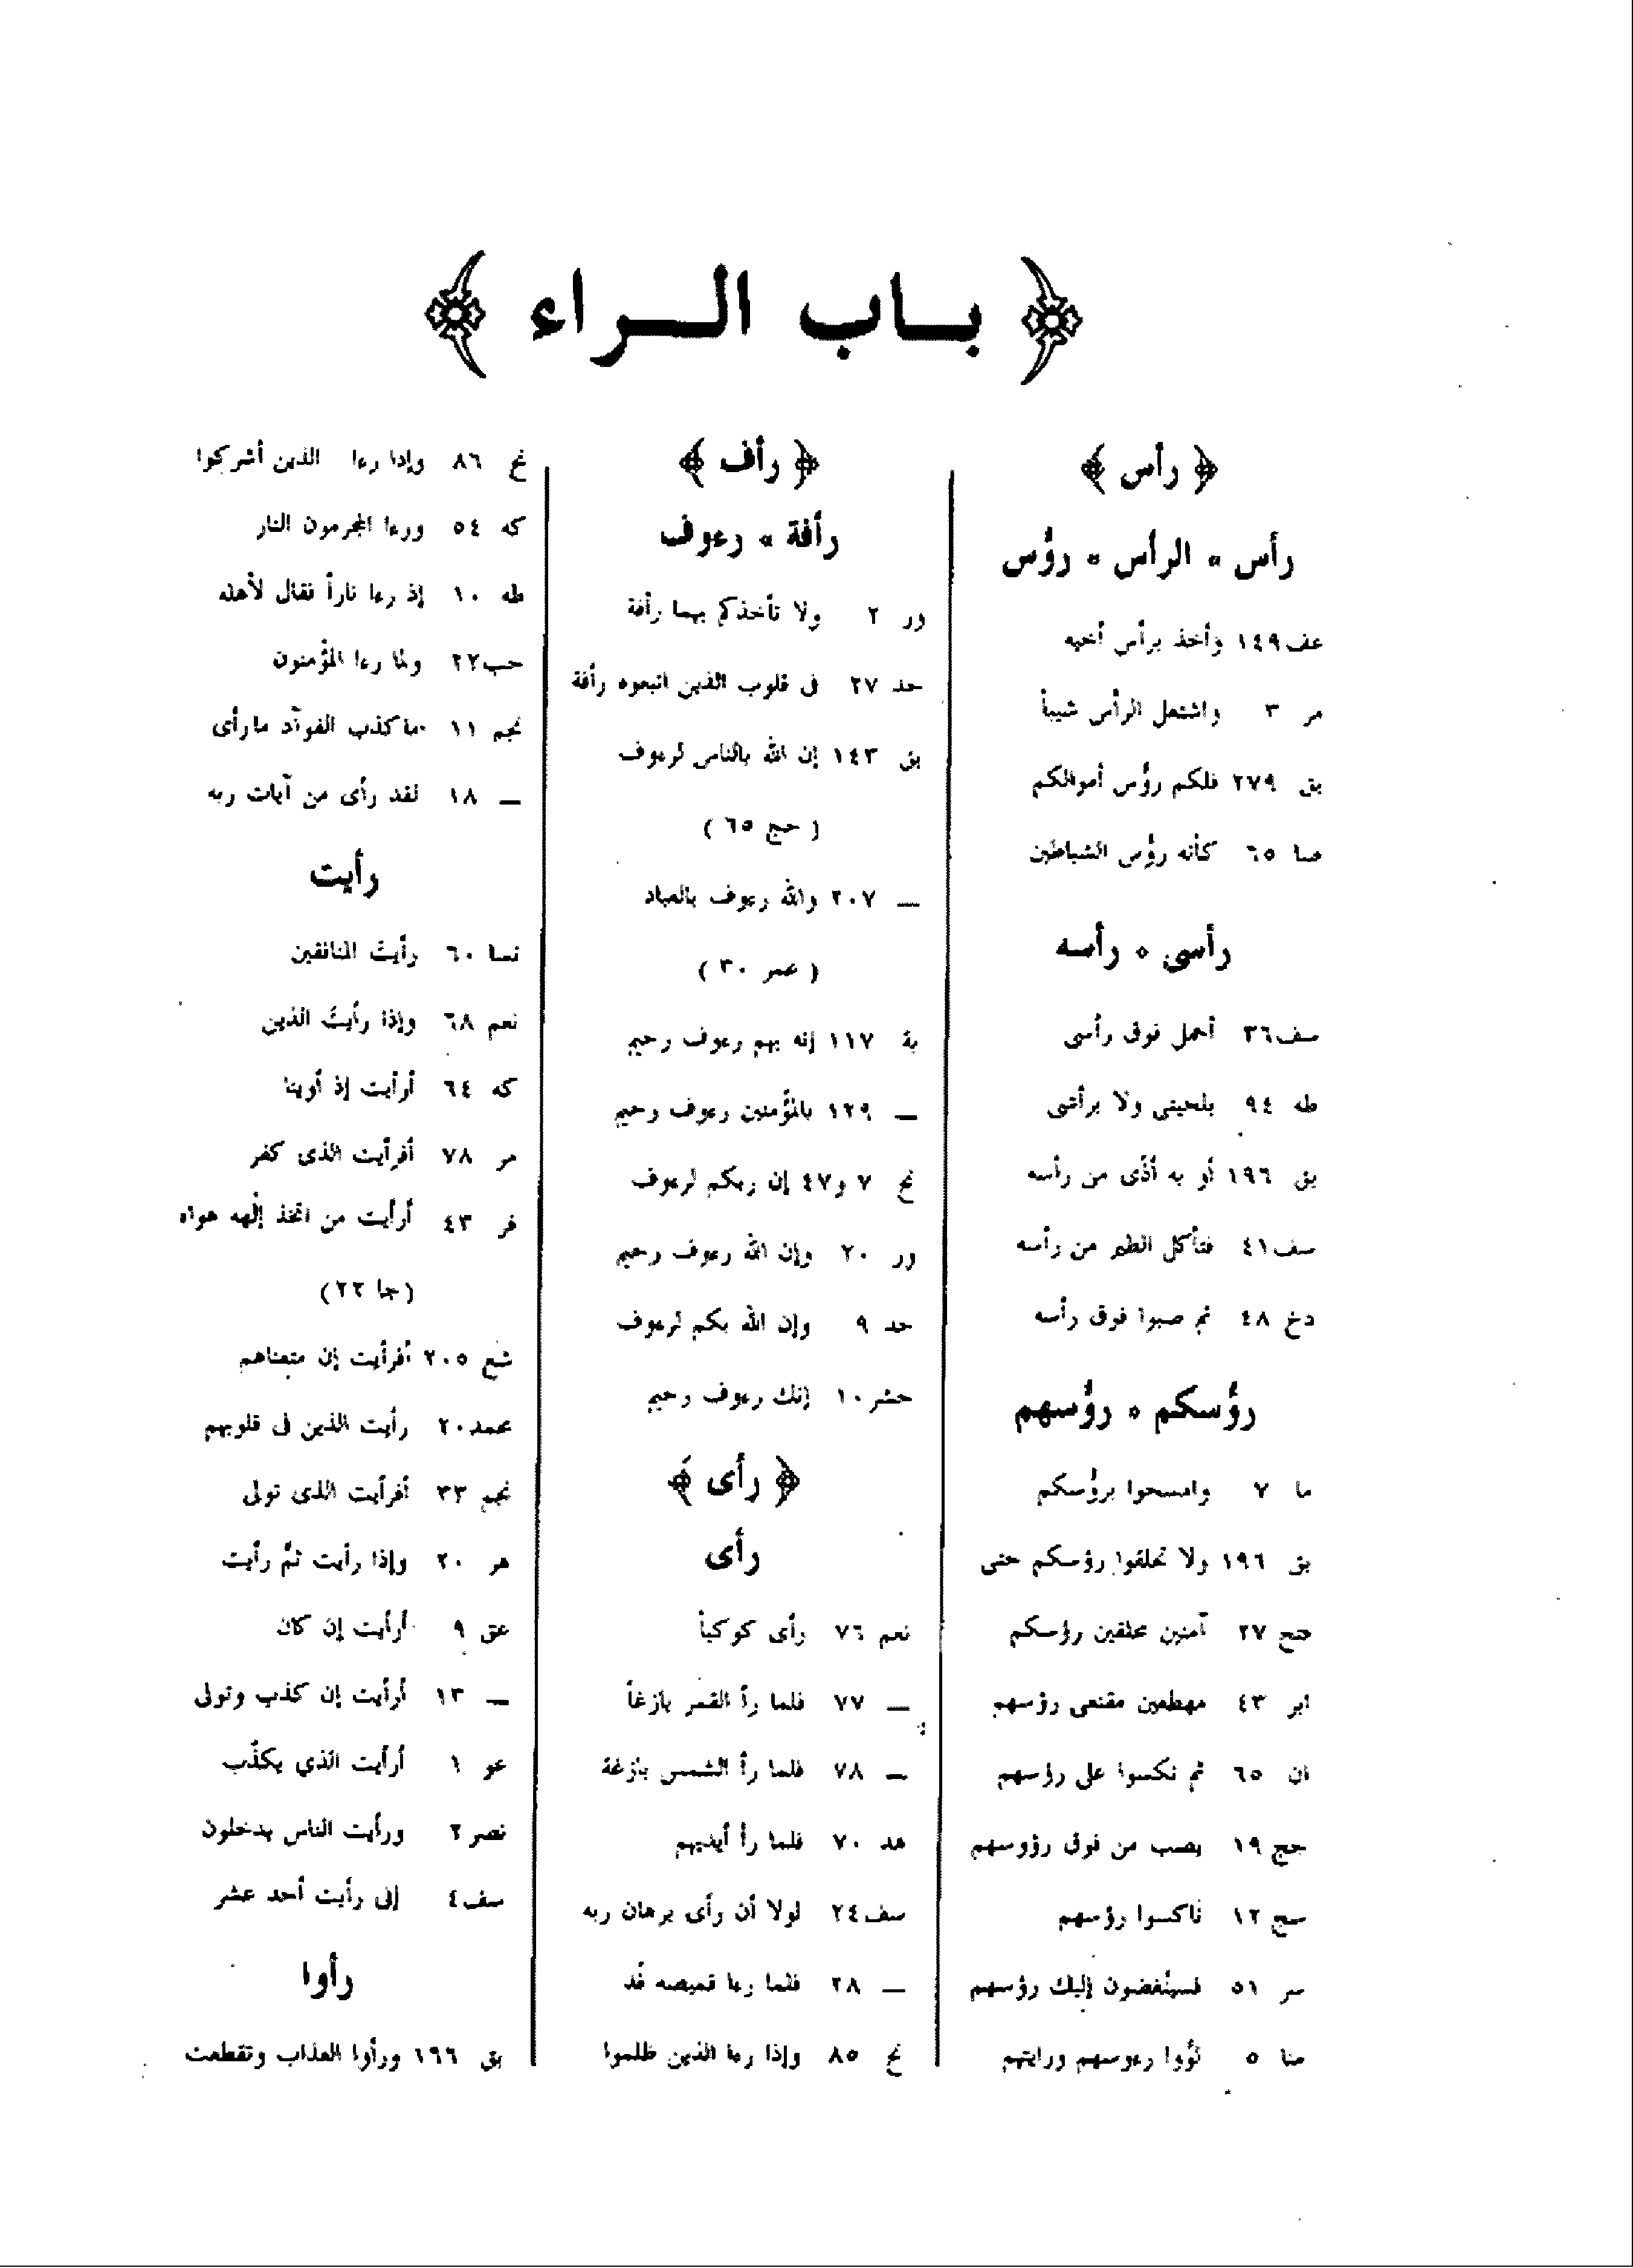 ﴿ بـاب الـراء ﴾
﴿ رأس ﴾
رأس * الرأس * رؤس
عف ١٤٩ وأخذ برأس أخيه
مر ٣ واشتعل الرأس شيباً
بق ٢٧٩ فلكم رؤس أموالكم
صا ٦٥ كأنه رؤس الشياطين
رأسى * رأسه
سف ٣٦ أحمل فوق رأسى
طه ٩٤ بلحيتى ولا برأسى
بق ١٩٦ أو به أذًى من رأسه
سف ٤١ فتأكل الطير من رأسه
دخ ٤٨ ثم صبوا فوق رأسه
رؤسكم * رؤسهم
ما ٧ وامسحوا برؤسكم
بق ١٩٦ ولا تحلقوا رؤسكم حتى
فتح ٢٧ آمنين محلقين رؤسكم
ابر ٤٣ مهطعين مقنعى رؤسهم
ان ٦٥ ثم نكسوا على رؤسهم
حج ١٩ يصب من فوق رؤوسهم
سج ١٢ ناكسوا رؤسهم
سر ٥١ فسينغضون إليك رؤسهم
منا ٥ لوّوا رءوسهم ورايتهم
﴿ رأف ﴾
رأفة * رءوف
ور ٢ ولا تأخذكم بهما رأفة
حد ٢٧ فى قلوب الذين اتبعوه رأفة
بق ١٤٣ إن الله بالناس لرءوف
( حج ٦٥ )
— ٢٠٧ والله رءوف بالعباد
( عمر ٣٠ )
بة ١١٧ إنه بهم رءوف رحيم
— ١٢٩ بالمؤمنين رءوف رحيم
نح ٧ و٤٧ إن ربكم لرءوف
ور ٢٠ وإن الله رءوف رحيم
حد ٩ وإن الله بكم لرءوف
حشر ١٠ إنك رءوف رحيم
﴿ رأى ﴾
رأى
نعم ٧٦ رأى كوكباً
— ٧٧ فلما رأ القمر بازغاً
— ٧٨ فلما رأ الشمس بازغة
هد ٧٠ فلما رأ أيديهم
سف ٢٤ لولا أن رأى برهان ربه
— ٢٨ فلما رءا قميصه قُد
نح ٨٥ وإذا رءا الذين ظلموا
نح ٨٦ وإذا رءا الذين أشركوا
كه ٥٤ ورءا المجرمون النار
طه ١٠ إذ رءا ناراً فقال لأهله
حب ٢٢ ولما رءا المؤمنون
نجم ١١ ما كذب الفوآد ما رأى
— ١٨ لقد رأى من آيات ربه
رأيت
نسا ٦٠ رأيتَ المنافقين
نعم ٦٨ وإذا رأيتَ الذين
كه ٦٤ أرأيت إذ أوينا
مر ٧٨ أفرأيت الذى كفر
فر ٤٣ أرأيت من اتخذ إلٰهه هواه
(جا ٢٢)
شع ٢٠٥ أفرأيت إن متعناهم
محمد ٢٠ رأيت الذين فى قلوبهم
نجم ٣٣ أفرأيت الذى تولى
هر ٢٠ وإذا رأيت ثمَّ رأيت
عق ٩ أرأيت إن كان
— ١٣ أرأيت إن كذب وتولى
عو ١ أرأيت الذي يكذّب
نصر ٢ ورأيت الناس يدخلون
سف ٤ إنى رأيت أحد عشر
رأوا
بق ١٩٦ ورأوا العذاب وتقطعت